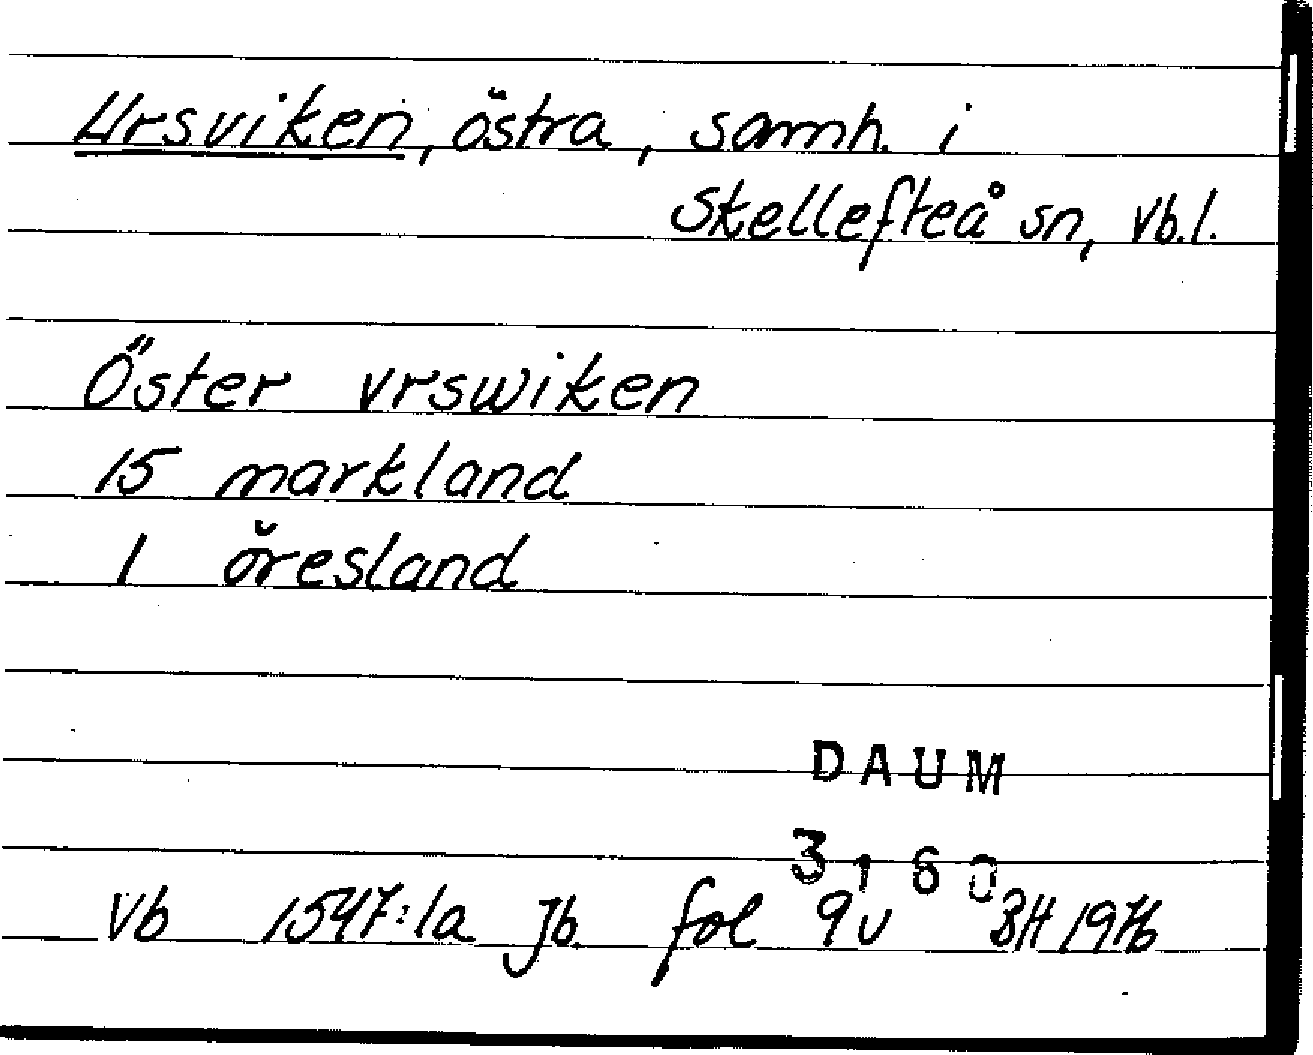 Ursviken, östra, samh. i
Skellefteå sn, Vb.l.
Öster vrswiken
15 markland
1 öresland
DAUM
3160
Vb 1547:1a Jb. fol 9v BH 1976